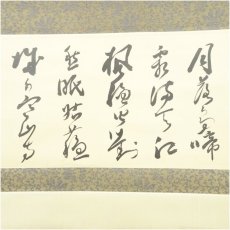 月落烏啼
霜滿天江
楓漁火對
愁眠姑蘇
城外寒山寺